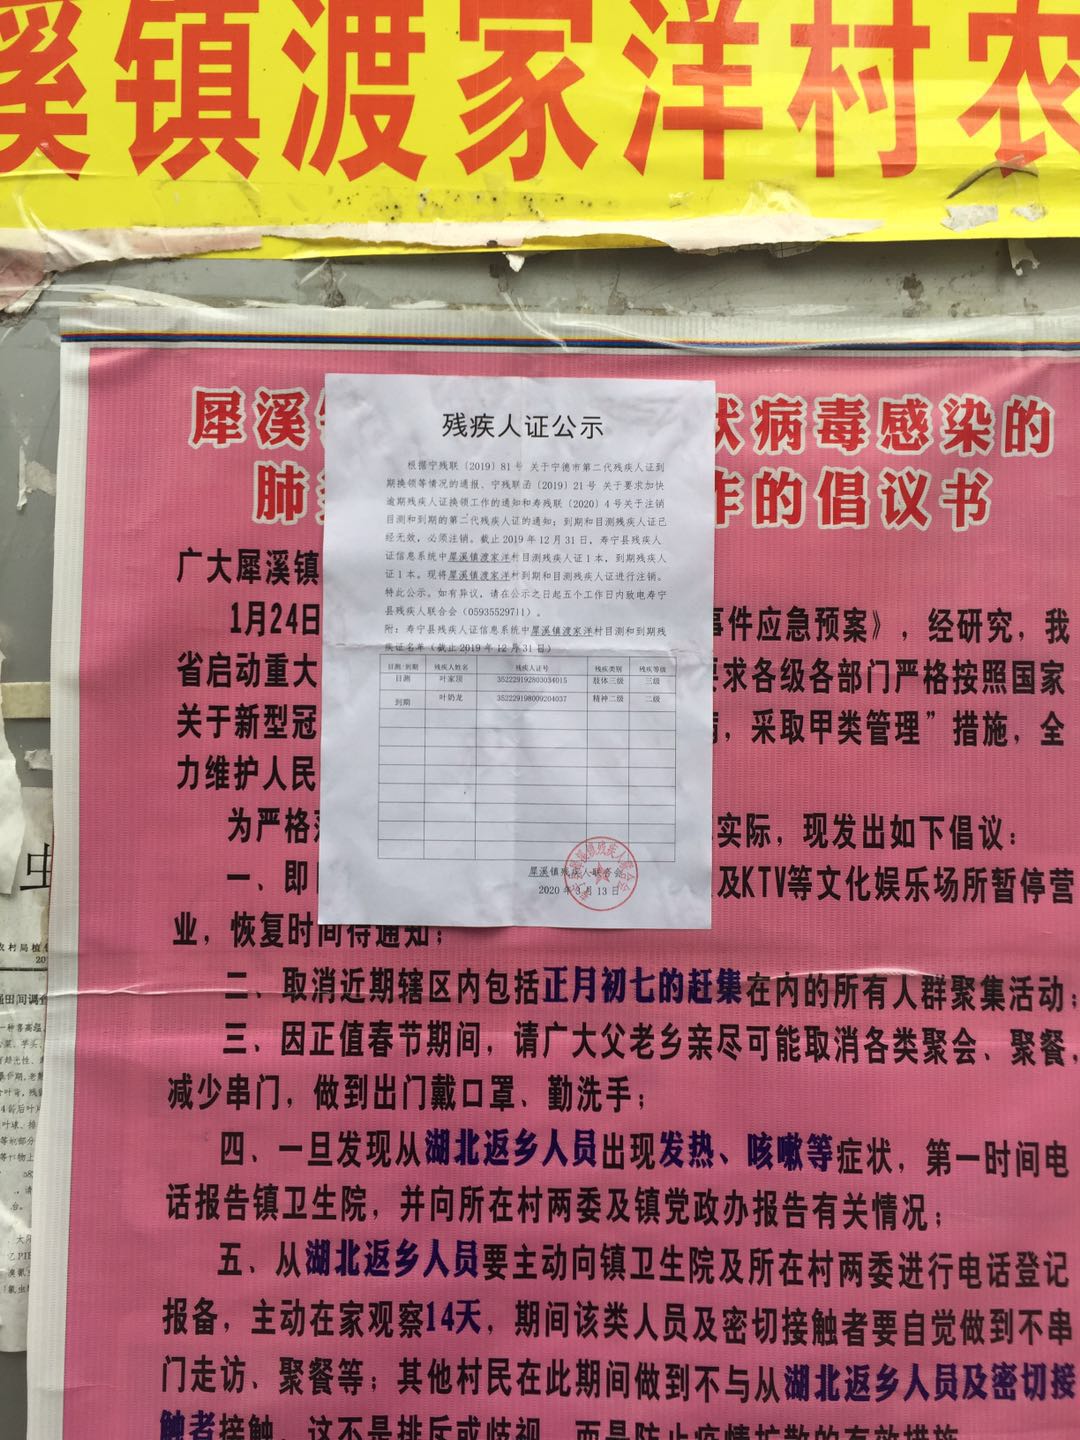 溪镇渡家洋村农
残疾人证公示
根据宁残联〔2019〕81号 关于宁德市第二代残疾人证到
期换领等情况的通报、宁残联函〔2019〕21号 关于要求加快
逾期残疾人证换领工作的通知和寿残联〔2020〕4号关于注销
目测和到期的第二代残疾人证的通知；到期和目测残疾人证已
经无效，必须注销。截止2019年12月31日，寿宁县残疾人
证信息系统中犀溪镇渡家洋村目测残疾人证1本，到期残疾人
证1本。现将犀溪镇渡家洋村到期和目测残疾人证进行注销。
特此公示。如有异议，请在公示之日起五个工作日内致电寿宁
县残疾人联合会（05935529711）。
附：寿宁县残疾人证信息系统中犀溪镇渡家洋村目测和到期残
疾证名单（截止2019年12月31日）
目测/到期 残疾人姓名 残疾人证号 残疾类别 残疾等级
目测 叶家顶 352229192803034015 肢体三级 三级
到期 叶奶龙 352229198009204037 精神二级 二级
犀溪镇残疾人联合会
2020年3月13日
犀溪 状病毒感染的
肺 作的倡议书
广大犀溪镇
1月24日 事件应急预案》，经研究，我
省启动重大 要求各级各部门严格按照国家
关于新型冠 病，采取甲类管理”措施，全
力维护人民
为严格 实际，现发出如下倡议：
一、即 及KTV等文化娱乐场所暂停营
业，恢复时间待通知；
二、取消近期辖区内包括正月初七的赶集在内的所有人群聚集活动；
三、因正值春节期间，请广大父老乡亲尽可能取消各类聚会、聚餐，
减少串门，做到出门戴口罩、勤洗手；
四、一旦发现从湖北返乡人员出现发热、咳嗽等症状，第一时间电
话报告镇卫生院，并向所在村两委及镇党政办报告有关情况；
五、从湖北返乡人员要主动向镇卫生院及所在村两委进行电话登记
报备，主动在家观察14天，期间该类人员及密切接触者要自觉做到不串
门走访、聚餐等；其他村民在此期间做到不与从湖北返乡人员及密切接
触者接触，这不是排斥或歧视，而是防止疫情扩散的有效措施